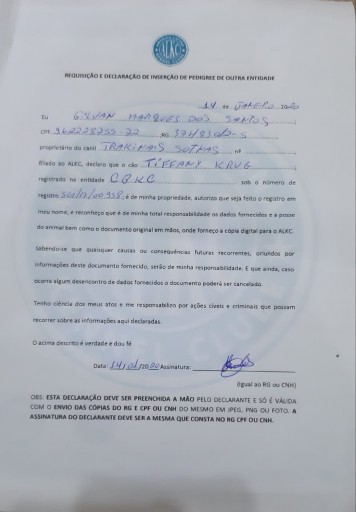 ALKC
REQUISIÇÃO E DECLARAÇÃO DE INSERÇÃO DE PEDIGREE DE OUTRA ENTIDADE
14 de JANEIRO 2020
Eu GILVAN MARQUES DOS SANTOS
CPF 362228255-72 RG
proprietário do canil nº
filiado ao ALKC, declaro que o cão TIFFANY KRUG
registrado na entidade CBKC sob o número de
registro é de minha propriedade, autorizo que seja feito o registro em
meu nome, e reconheço que é de minha total responsabilidade os dados fornecidos e a posse
do animal bem como o documento original em mãos, onde forneço a cópia digital para o ALKC.
Sabendo-se que quaisquer causas ou consequências futuras recorrentes, oriundos por
informações deste documento fornecido, serão de minha responsabilidade. E que ainda, caso
ocorra algum desencontro de dados fornecidos o documento poderá ser cancelado.
Tenho ciência dos meus atos e me responsabilizo por ações cíveis e criminais que possam
recorrer sobre as informações aqui declaradas.
O acima descrito é verdade e dou fé
Data: 14/01/2020 Assinatura:
(Igual ao RG ou CNH)
OBS: ESTA DECLARAÇÃO DEVE SER PREENCHIDA A MÃO PELO DECLARANTE E SÓ É VÁLIDA
COM O ENVIO DAS CÓPIAS DO RG E CPF OU CNH DO MESMO EM JPEG, PNG OU FOTO. A
ASSINATURA DO DECLARANTE DEVE SER A MESMA QUE CONSTA NO RG CPF OU CNH.